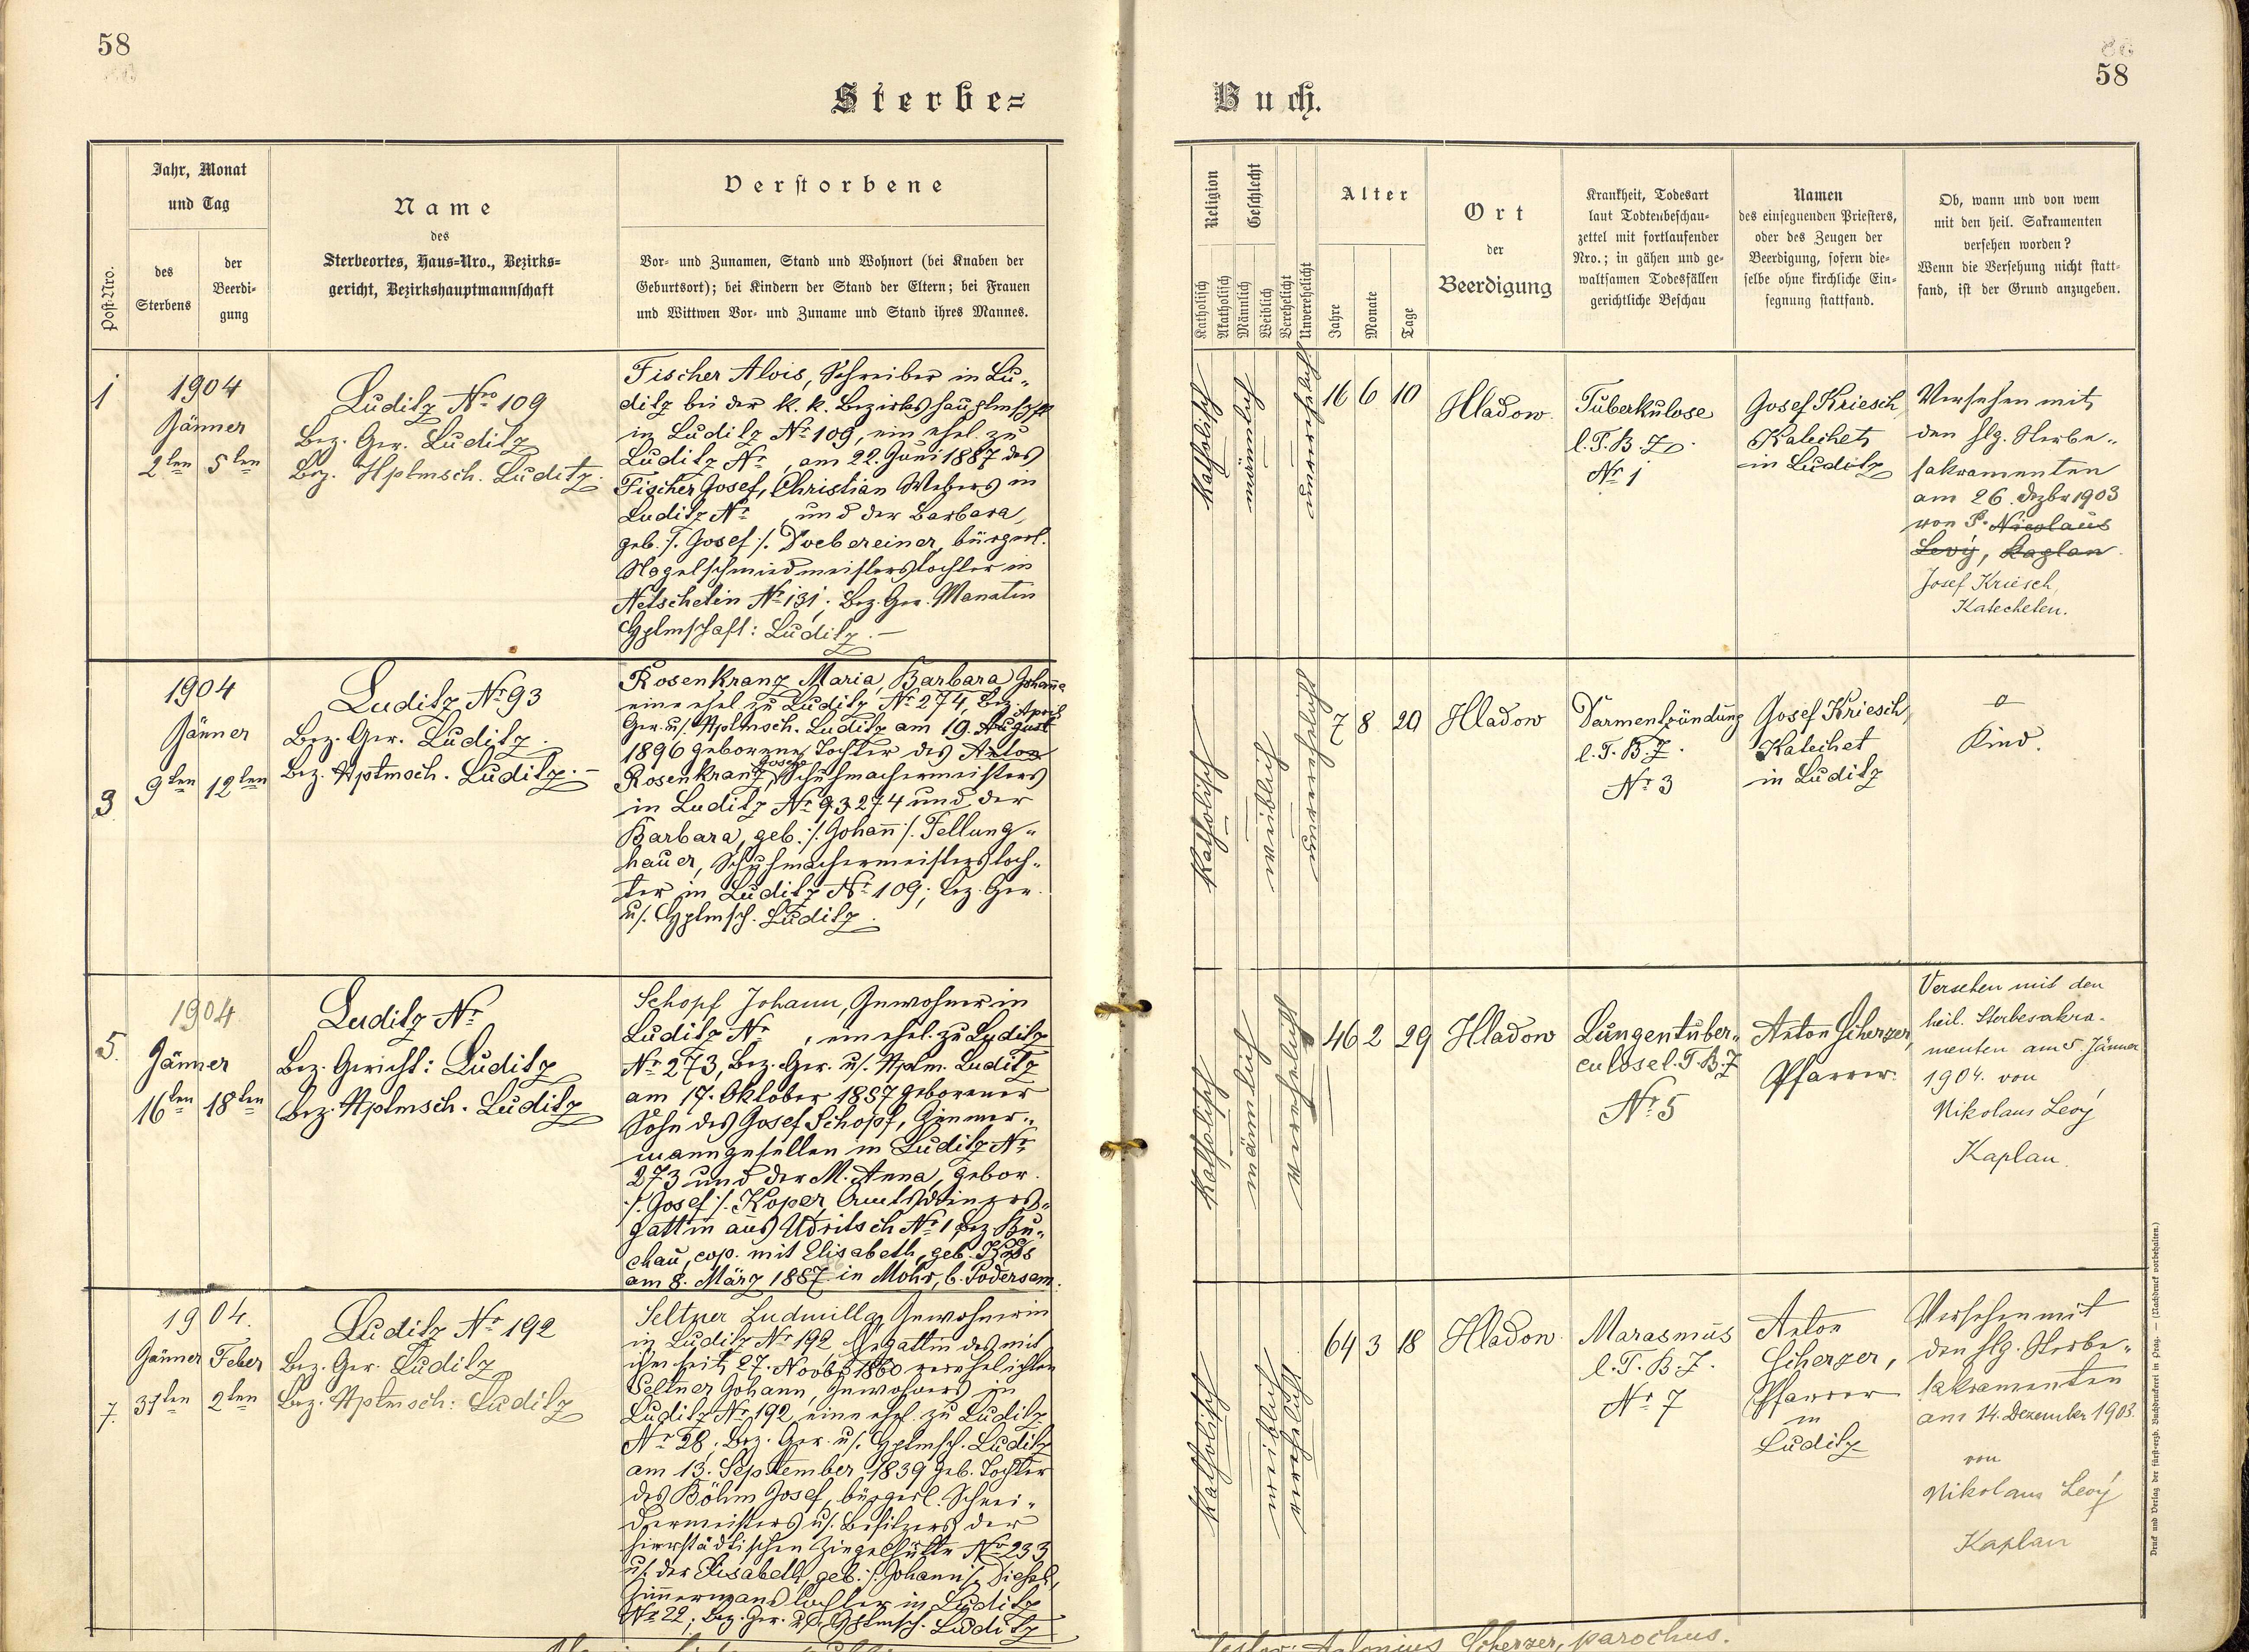 58
58
Sterbe=
Buch.
Post-Nro.
Jahr, Monat
und Tag
des
Sterbens
der
Beerdi-
gung
Name
des
Sterbeortes, Haus=Nro., Bezirks=
gericht, Bezirkshauptmannschaft
Verstorbene
Vor- und Zunamen, Stand und Wohnort (bei Knaben der
Geburtsort); bei Kindern der Stand der Eltern; bei Frauen
und Wittwen Vor- und Zuname und Stand ihres Mannes.
Religion
Katholisch
Akatholisch
Geschlecht
Männlich
Weiblich
Verehelicht
Unverehelicht
Alter
Jahre
Monate
Tage
Ort
der
Beerdigung
Krankheit, Todesart
laut Todtenbeschau-
zettel mit fortlaufender
Nro.; in gähen und ge-
waltsamen Todesfällen
gerichtliche Beschau
Namen
des einsegnenden Priesters,
oder des Zeugen der
Beerdigung, sofern die-
selbe ohne kirchliche Ein-
segnung stattfand.
Ob, wann und von wem
mit den heil. Sakramenten
versehen worden?
Wenn die Versehung nicht statt-
fand, ist der Grund anzugeben.
1
1904
Jänner
2ten 5ten
Luditz Nro 109
Bez. Ger. Luditz
Bez. Hptmsch. Luditz.
Fischer Alois, Schreiber in Lu„
ditz bei der k. k. Bezirkshauptmschft
in Luditz Nr 109, ein ehel. zu
Luditz Nr , am 22. Juni 1887 des
Fischer Josef, Christian Webers in
Luditz Nr und der Barbara,
geb. /. Josef /. Doebereiner, bürgerl.
Nagelschmiedmeisterstochter in
Netschetin Nr 131; Bez. Ger. Manetin
Hptmschaft: Luditz.—
katholisch
männlich
unverehelicht
16 6 10
Hladow.
Tuberkulose
l. T. B. Z.
Nr 1
Josef Kriesch,
Katechet
in Luditz
Versehen mit
den hlg. Sterbe„
sakramenten
am 26. Dezbr 1903
von P. Nicolaus
Levý, Kaplan.
Josef Kriesch,
Katecheten.
3
1904
Jänner
9ten 12ten
Luditz Nr 93
Bez. Ger. Luditz.
Bez. Hptmsch. Luditz.—
Rosenkranz Maria, Barbara Johanna
eine ehel zu Luditz Nr 274, Bez.
April
Ger. u/. Hptmsch. Luditz am 19. August
1896 geborene Tochter des Anton
Josefs
Rosenkranz, Schuhmachermeisters
in Luditz Nr 93 274 und der
Barbara, geb. /. Johann /. Fellung„
hauer, Schuhmachermeisterstoch„
ter in Luditz Nr 109; Bez. Ger.
u/. Hptmsch. Luditz.
katholisch
weiblich
unverehelicht
7 8 20
Hladow
Darmentzündung
l. T. B. Z.
Nr 3
Josef Kriesch,
Katechet
in Luditz
Kind.
5.
1904
Jänner
16ten 18ten
Luditz Nr
Bez. Gericht: Luditz
Bez. Hptmsch. Luditz
Schopf Johann, Inwohner in
Luditz Nr , ein ehel. zu Luditz
Nr 273, Bez. Ger. u/. Hptm. Luditz
am 17. Oktober 1857 geborener
Sohn des Josef Schopf, Zimmer„
manngesellen in Luditz Nr
273 und der M. Anna, gebor.
/. Josef /. Koper, Amtsdieners„
gattin aus Udritsch Nr 1 Bez. Bu„
chau, cop. mit Elisabeth, geb.
am 8. März 1887 in Mohr, b. Podersam.
katholisch
männlich
verehelicht
46 2 29
Hladow
Lungentuber„
culose l. T. B. Z
Nr 5
Anton Scherzer,
Pfarrer.
Versehen mit den
heil. Sterbesakra-
menten am 5. Jänner
1904. von
Nikolaus Levý
Kaplan.
7.
1904.
Jänner Feber
31ten 2ten
Luditz Nr 192
Bez. Ger. Luditz
Bez. Hptmsch: Luditz
Seltner Ludmilla, Inwohnerin
in Luditz Nr 192, Ehegattin des mit
ihr seit 27. Novbr 1860 verehelichten
Seltner Johann, Inwohners in
Luditz Nr 192, eine ehel. zu Luditz
Nr 28; Bez. Ger. u/. Hptmsch. Luditz
am 13. September 1839 geb. Tochter
des Böhm Josef, bürgerl. Schnei„
dermeisters u/. Besitzers der
hierstädtischen Ziegelhütte Nr 233
u/. der Elisabeth, geb. /. Johann /.
Zimmermanns Tochter in Luditz
Nr 22; Bez. Ger. u/. Hptmsch. Luditz
katholisch
weiblich
verehelicht
64 3 18
Hladow.
Marasmus
l. T. B. Z.
Nr 7
Anton
Scherzer,
Pfarrer
in
Luditz
Versehen mit
den hlg. Sterbe„
sakramenten
am 14. Dezember 1903.
von
Nikolaus Levý
Kaplan
Antonius Scherzer, parochus.
Druck und Verlag der fürst-erzb. Buchdruckerei in Prag. — (Nachdruck vorbehalten.)